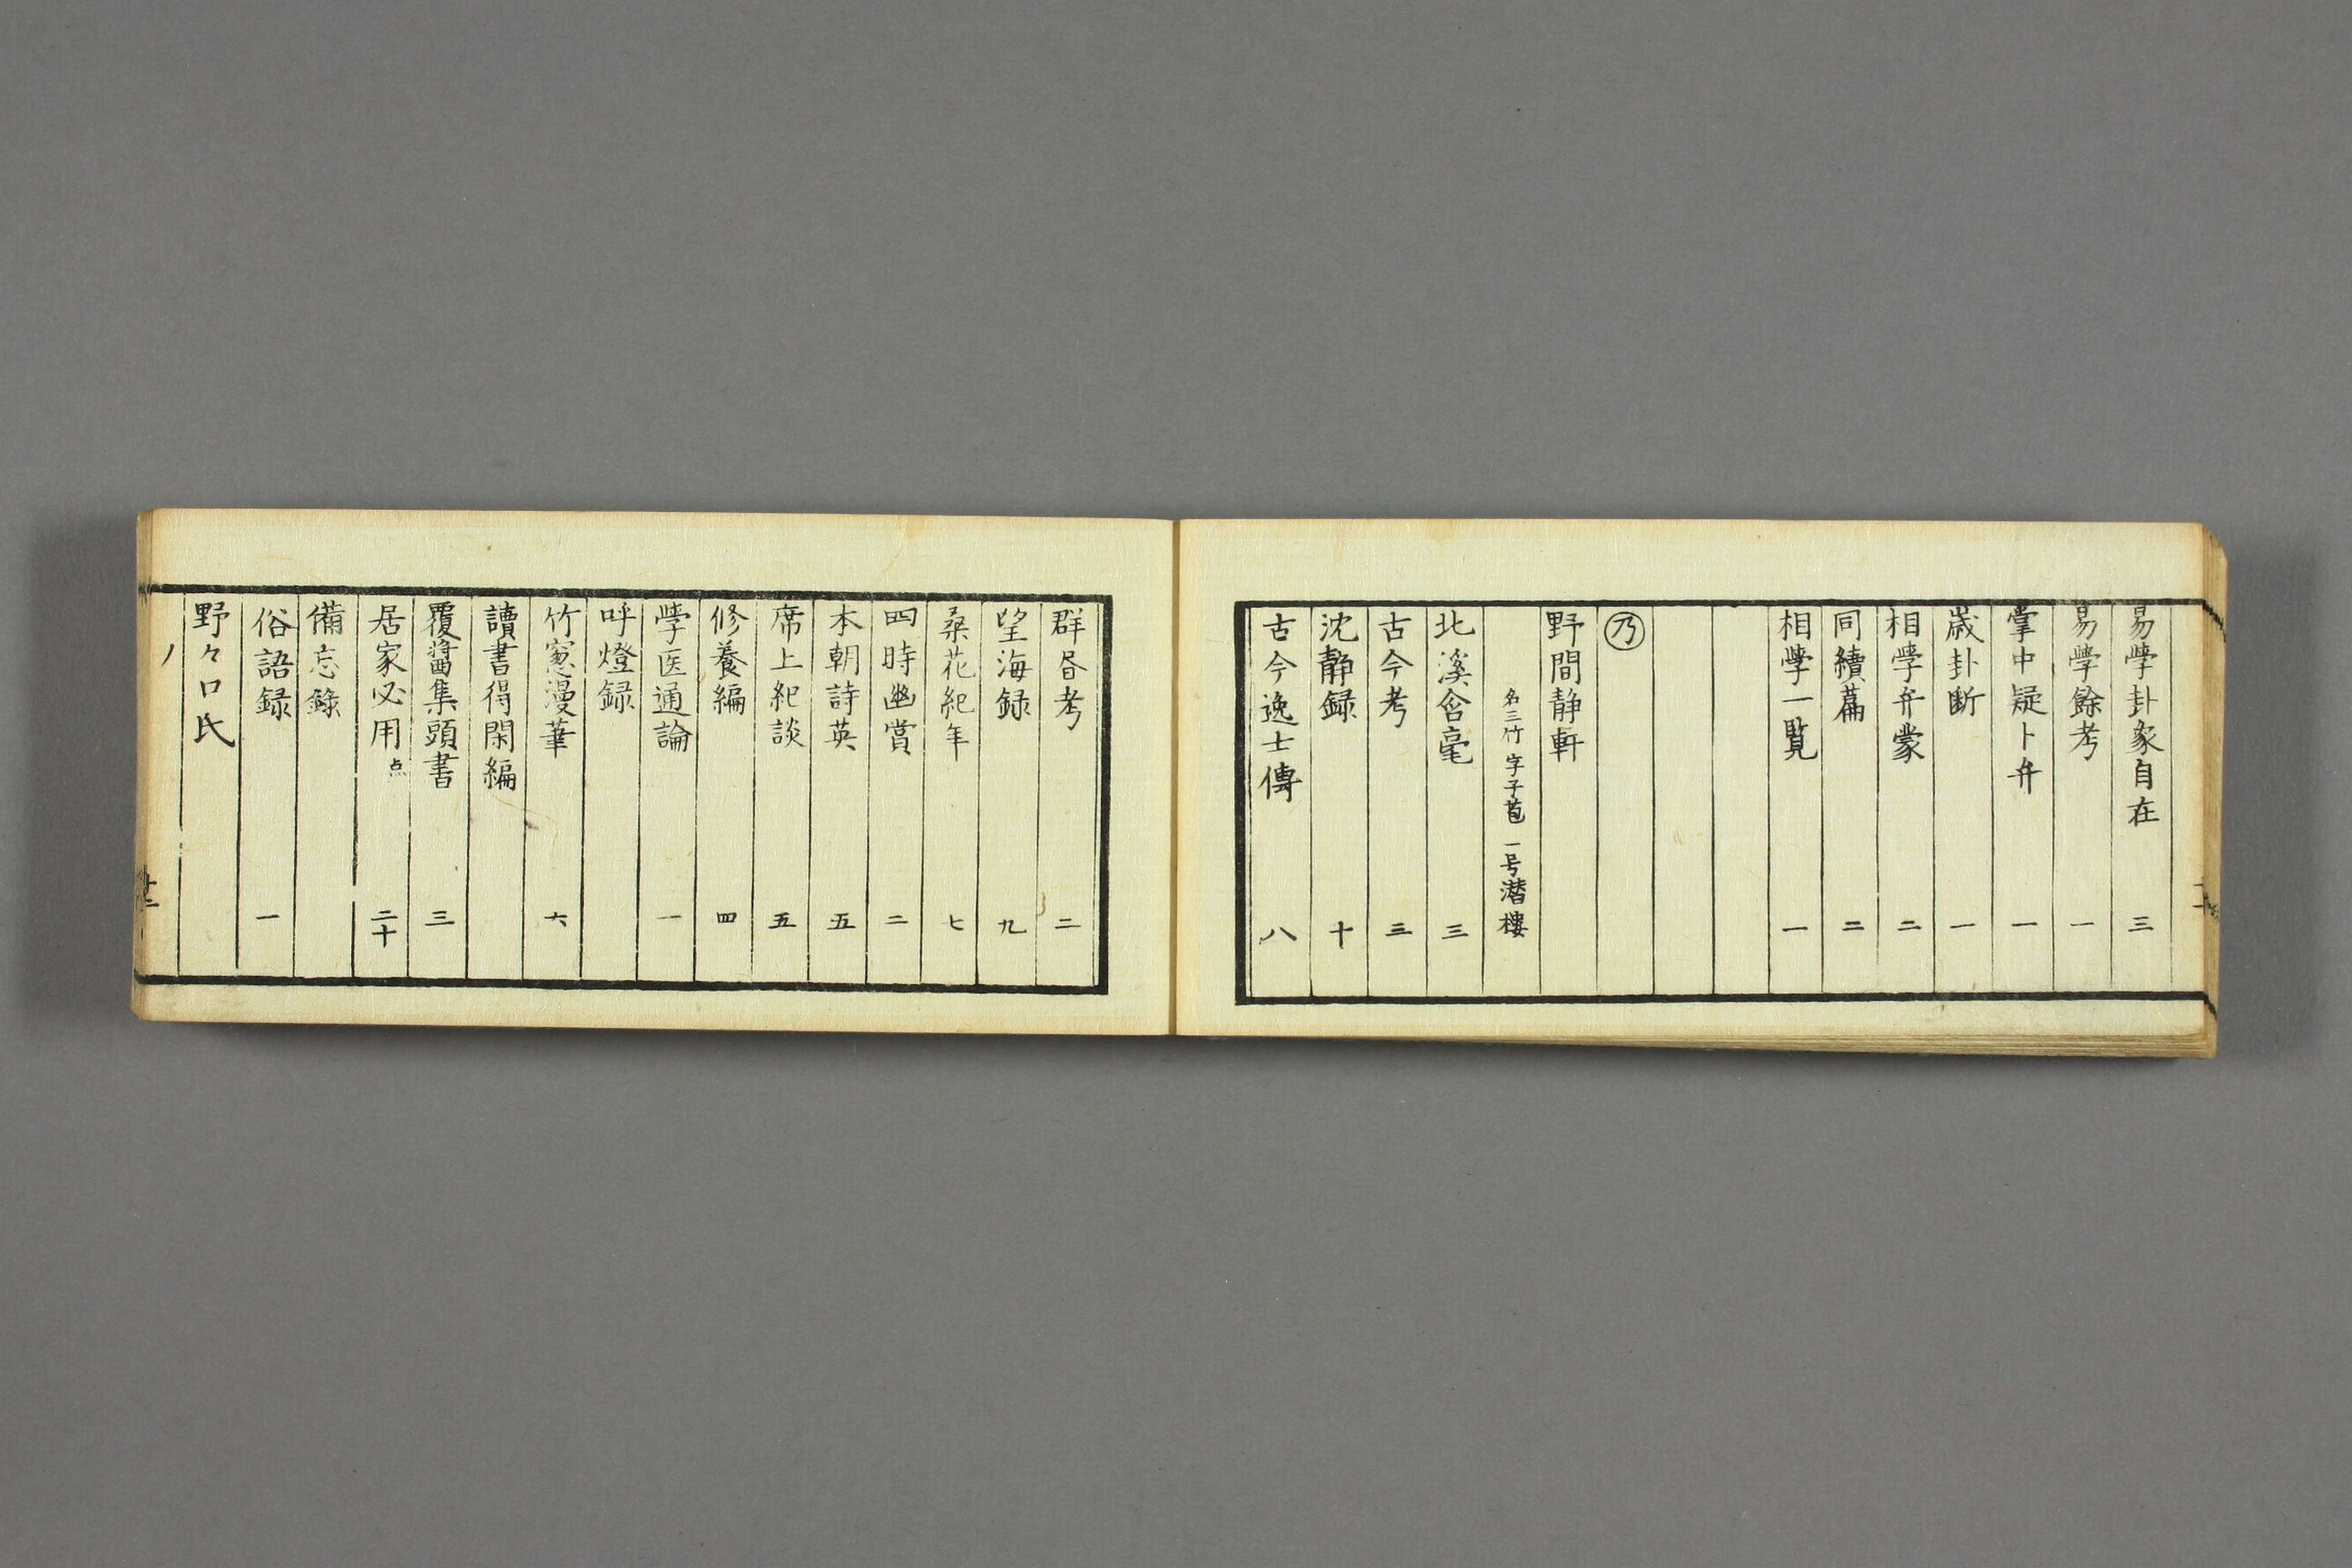 易學卦象自在 三
易學餘考 一
掌中疑卜弁 一
歳卦断 一
相學弁蒙 二
同續篇 二
相學一覧 一
乃
野間静軒
名三竹 字子苞 一号潜樓
北溪含毫 三
古今考 三
沈静録 十
古今逸士傳 八
群昏考 二
望海録 九
桑花紀年 七
四時幽賞 二
本朝詩英 五
席上紀談 五
修養編 四
學医通論 一
呼燈録
竹窓漫筆 六
讀書得閑編
覆醤集頭書 三
居家必用点 二十
備忘錄
俗語録 一
野々口氏
ノ